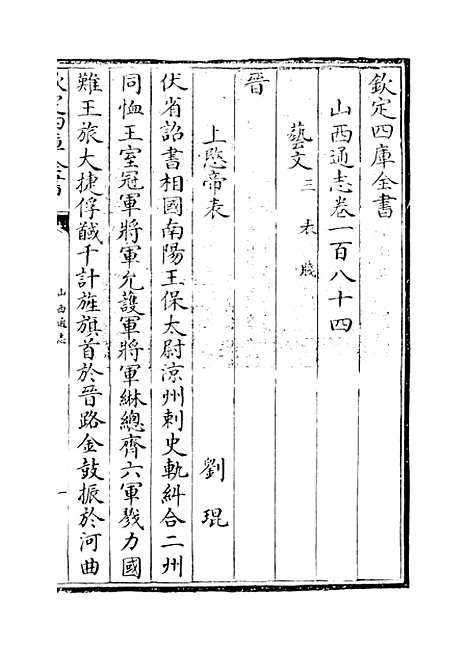 欽定四庫全書
山西通志卷一百八十四
藝文三 表 牋
晉
上愍帝表 劉琨
伏省詔書相國南陽王保太尉涼州刺史軌糾合二州
同恤王室冠軍將軍允護軍將軍綝總齊六軍戮力國
難王旅大捷俘馘千計旌旗首於晉路金鼓振於河曲
山西通志
一